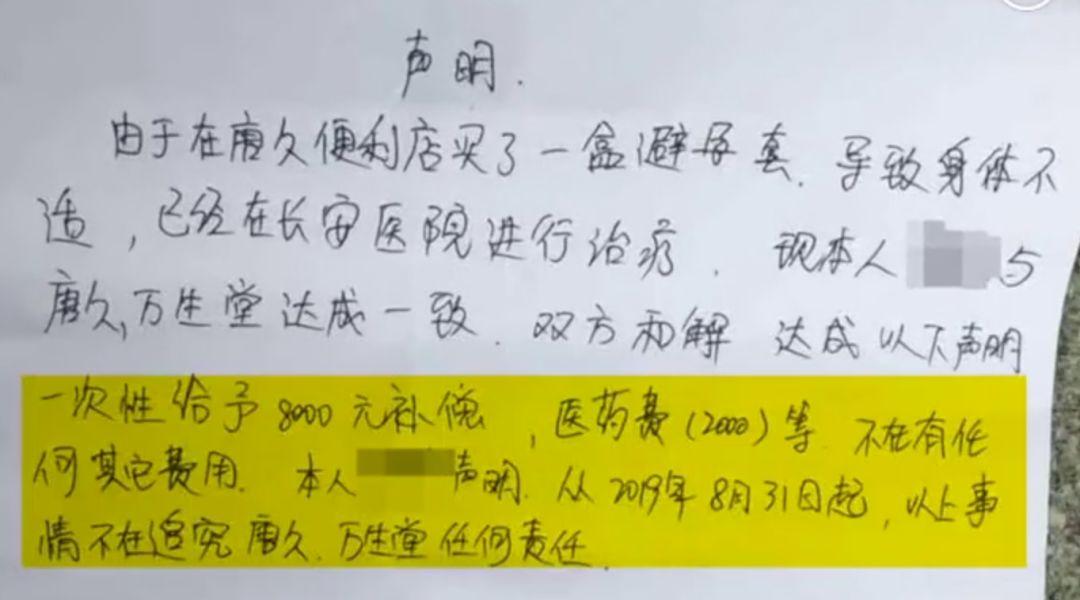 声明.
由于在唐久便利店买了一盒避孕套.导致身体不
适,已经在长安医院进行治疗.现本人与
唐久,万生堂达成一致.双方和解 达成以下声明
一次性给予8000元补偿,医药费(2000)等.不在有任
何其它费用.本人声明.从2019年8月31日起,以上事
情不在追究唐久.万生堂任何责任.